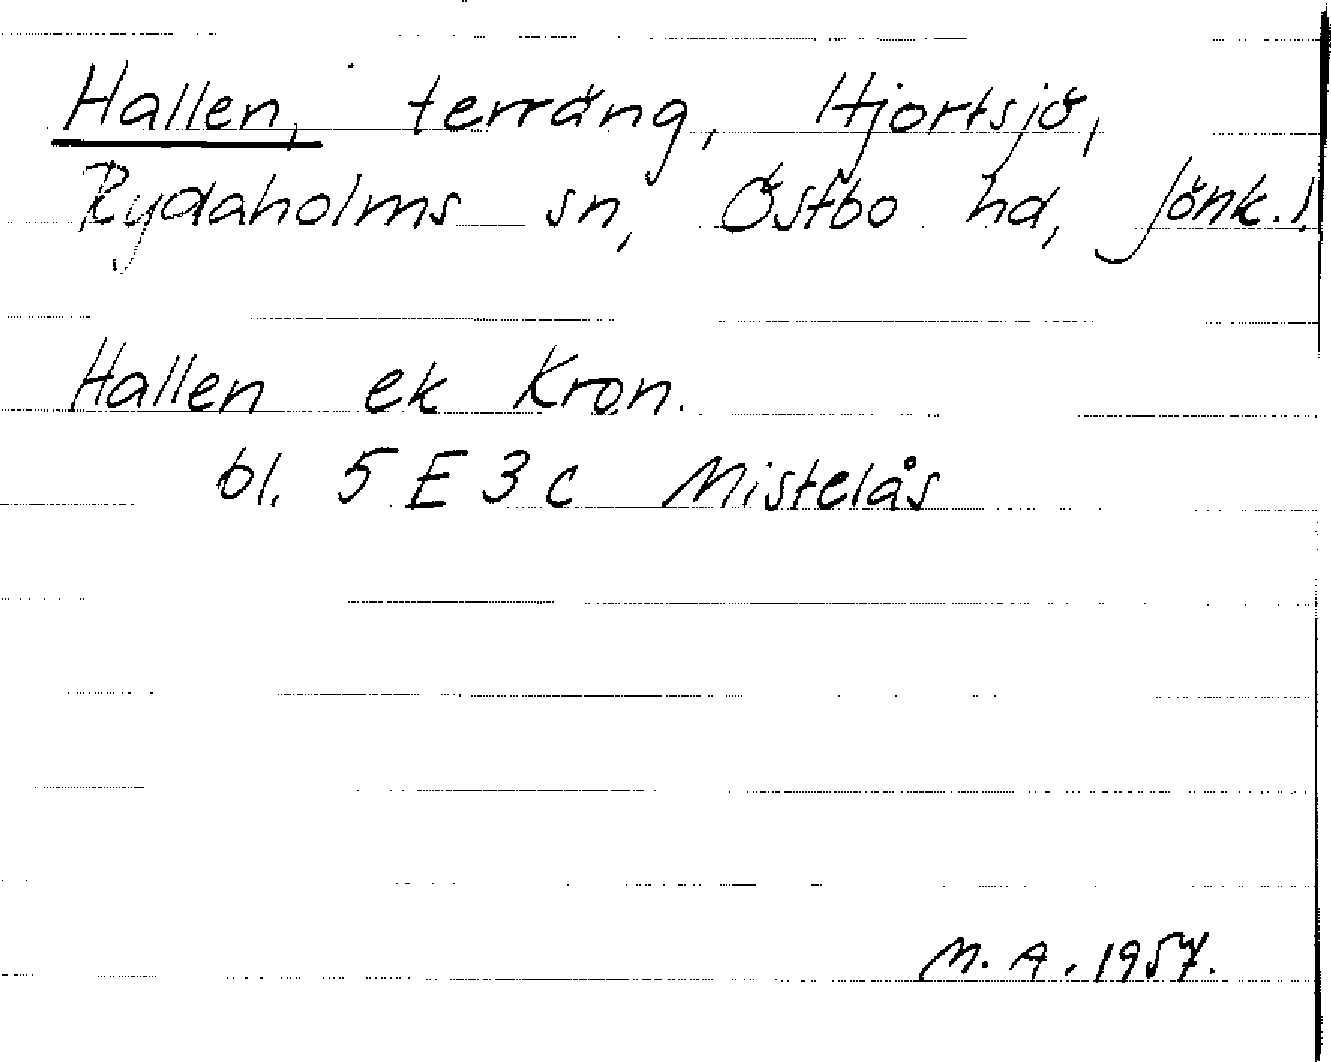 Hallen, terräng, Hjortsjö,
Rydaholms sn, Östbo hd, Jönk. l.
Hallen ek Kron.
bl. 5 E 3 c Mistelås
M. A. 1957.